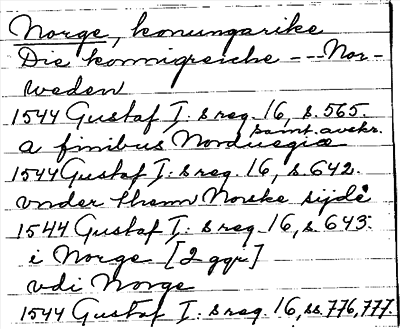 Norge, konungarike
Die konnigreiche --- Nor-
weden
1544 Gustaf I: s reg. 16, s. 565.
samt. avskr.
a finibus Norduegiæ
1544 Gustaf I: s reg. 16, s. 642.
vnder them Norske sijde
1544 Gustaf I: s reg. 16, s. 643.
i Norge [2 ggr]
vdi Norge
1544 Gustaf I: s reg. 16, ss. 776, 777.